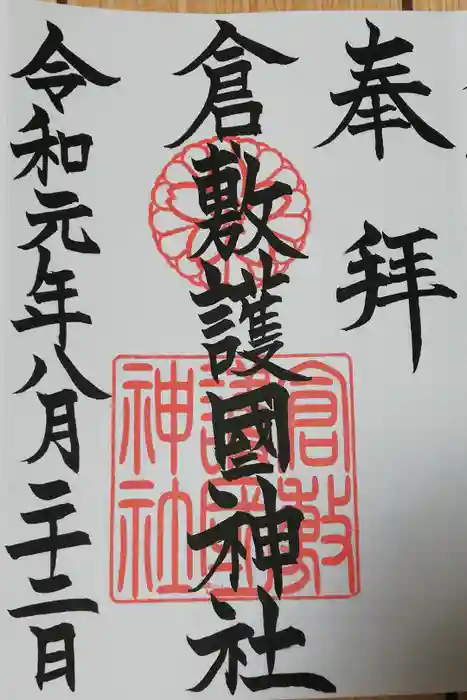 奉拜
倉敷護國神社
令和元年八月二十二日
倉敷
護國
神社